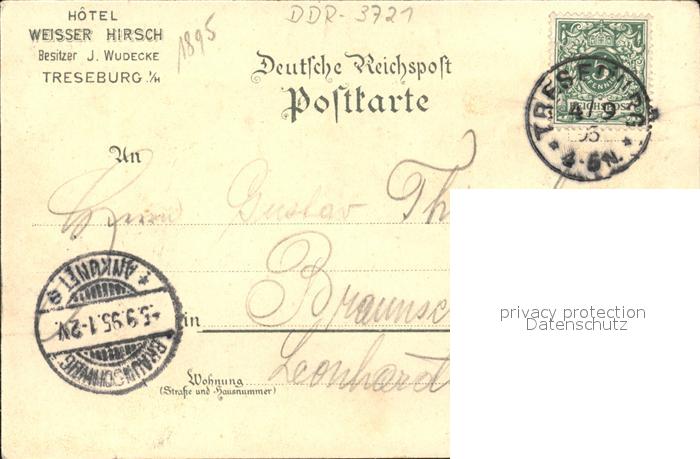 HÔTEL
WEISSER HIRSCH
Besitzer J. WUDECKE
TRESEBURG i/H
1895
DDR-3721
Deutsche Reichspost
Postkarte
5
PFENNIG
REICHSPOST
TRESEBURG
4/9
95
* 4-5N. *
An
Herrn Gustav Th
* ANKUNFT *
5.9.95.1-2V.
BRAUNSCHWEIG
in Braunsc
Wohnung
(Straße und Hausnummer)
Leonhard
privacy protection
Datenschutz